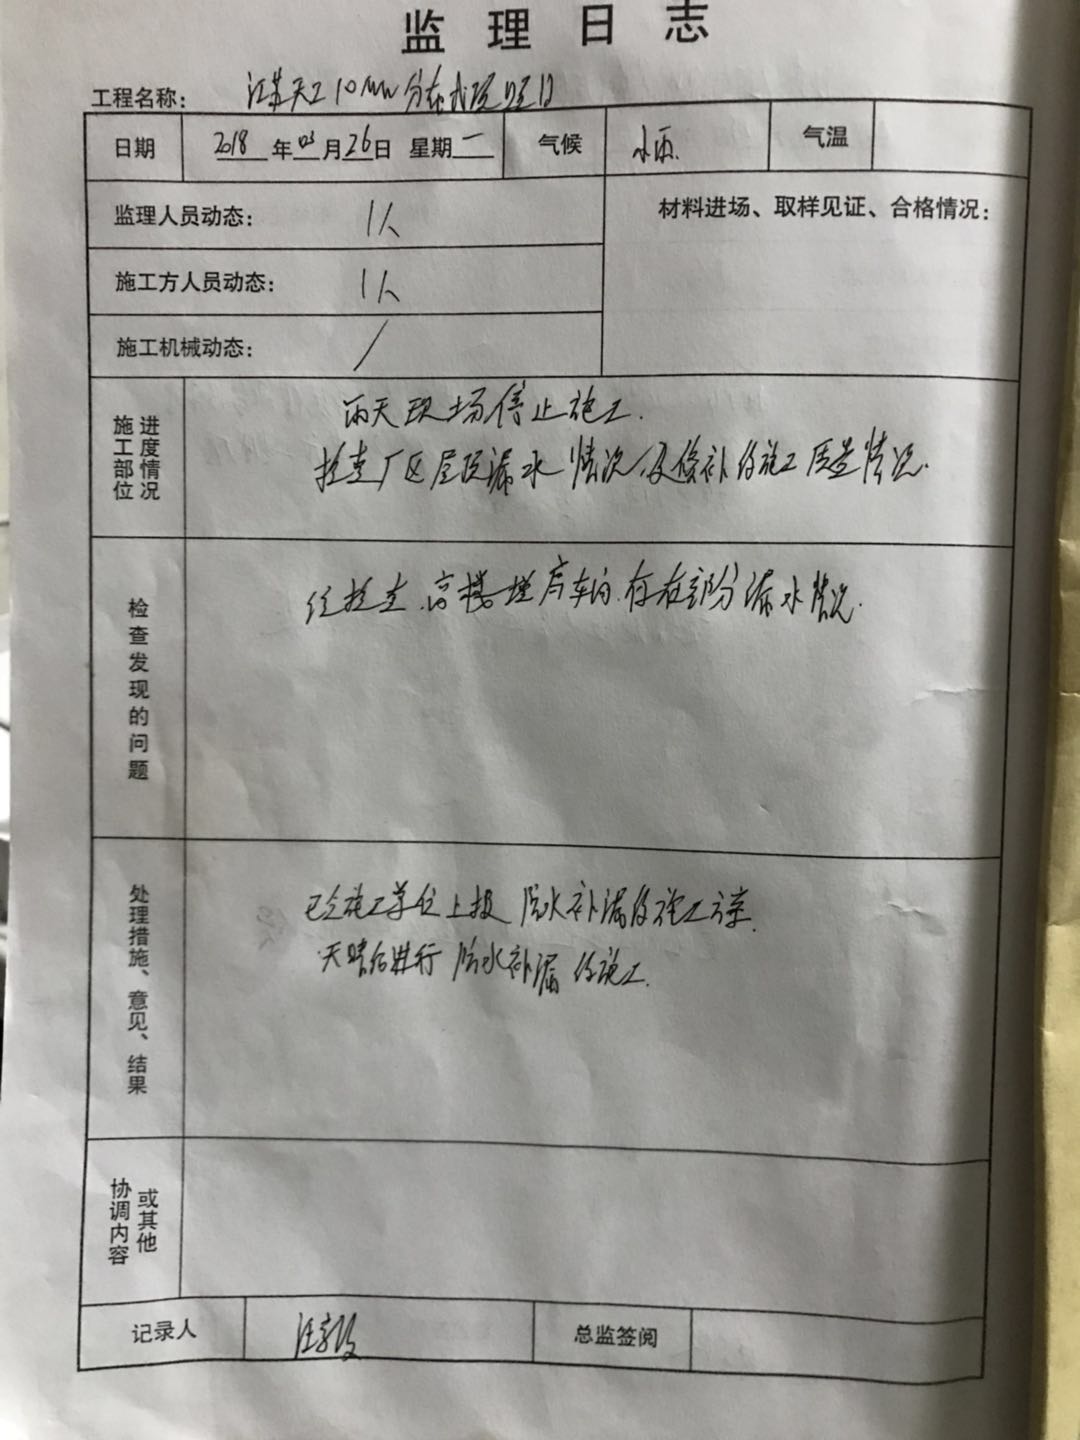 监理日志
工程名称: 江苏天工10MW分布式项目
日期 2018年03月26日 星期一 气候 小雨. 气温
监理人员动态: 1人
材料进场、取样见证、合格情况:
施工方人员动态: 1人
施工机械动态: /
施工部位 进度情况
雨天现场停止施工.
检查厂区屋顶漏水情况及修补的施工质量情况.
检查发现的问题
经检查.高楼 车间.存在部分漏水情况.
处理措施、意见、结果
已令施工单位上报防水补漏的施工方案.
天晴后进行防水补漏的施工.
协调内容 或其他
记录人
总监签阅